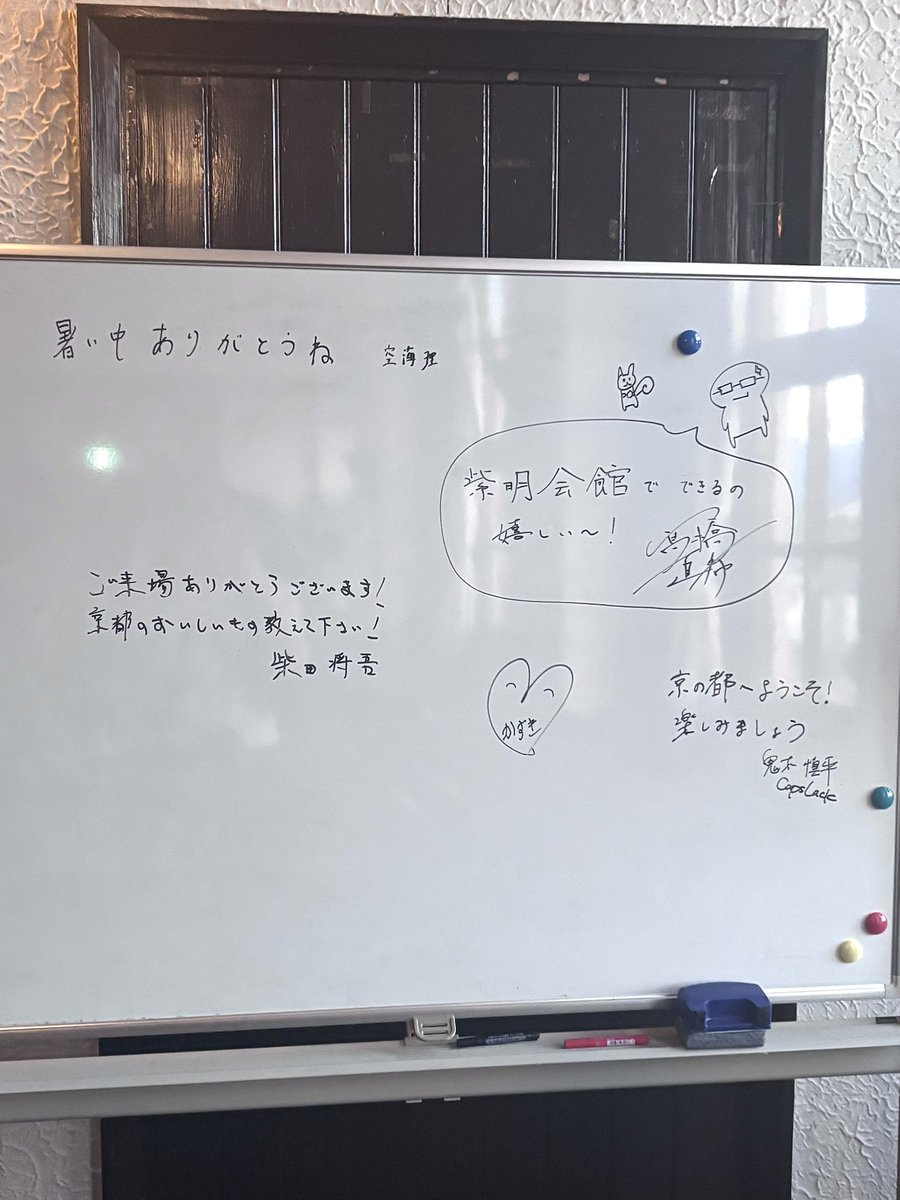 暑い中ありがとうね 空海理
紫明会館でできるの
嬉しい〜!
高橋
ご来場ありがとうございます!
京都のおいしいもの教えて下さい!
柴田将吾
かずき
京の都へようこそ!
楽しみましょう
鬼木 慎平
CapsLack